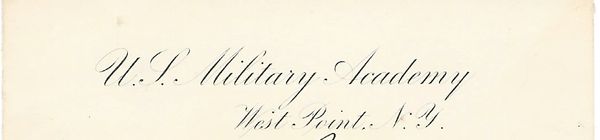 U.S. Military Academy
West Point. N.Y.